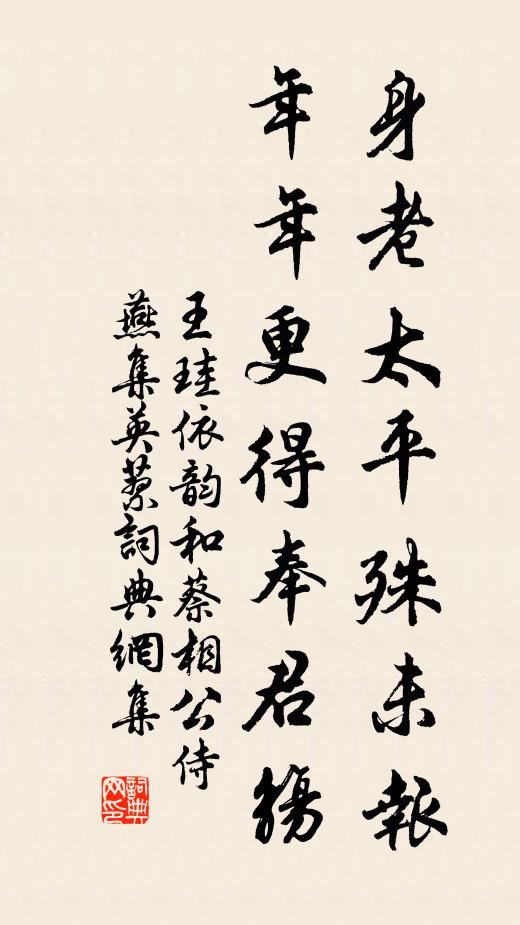 身老太平殊未報
年年更得奉君觴
王珪依韵和蔡相公侍
燕集英蔡詞典網集
詞典
网印